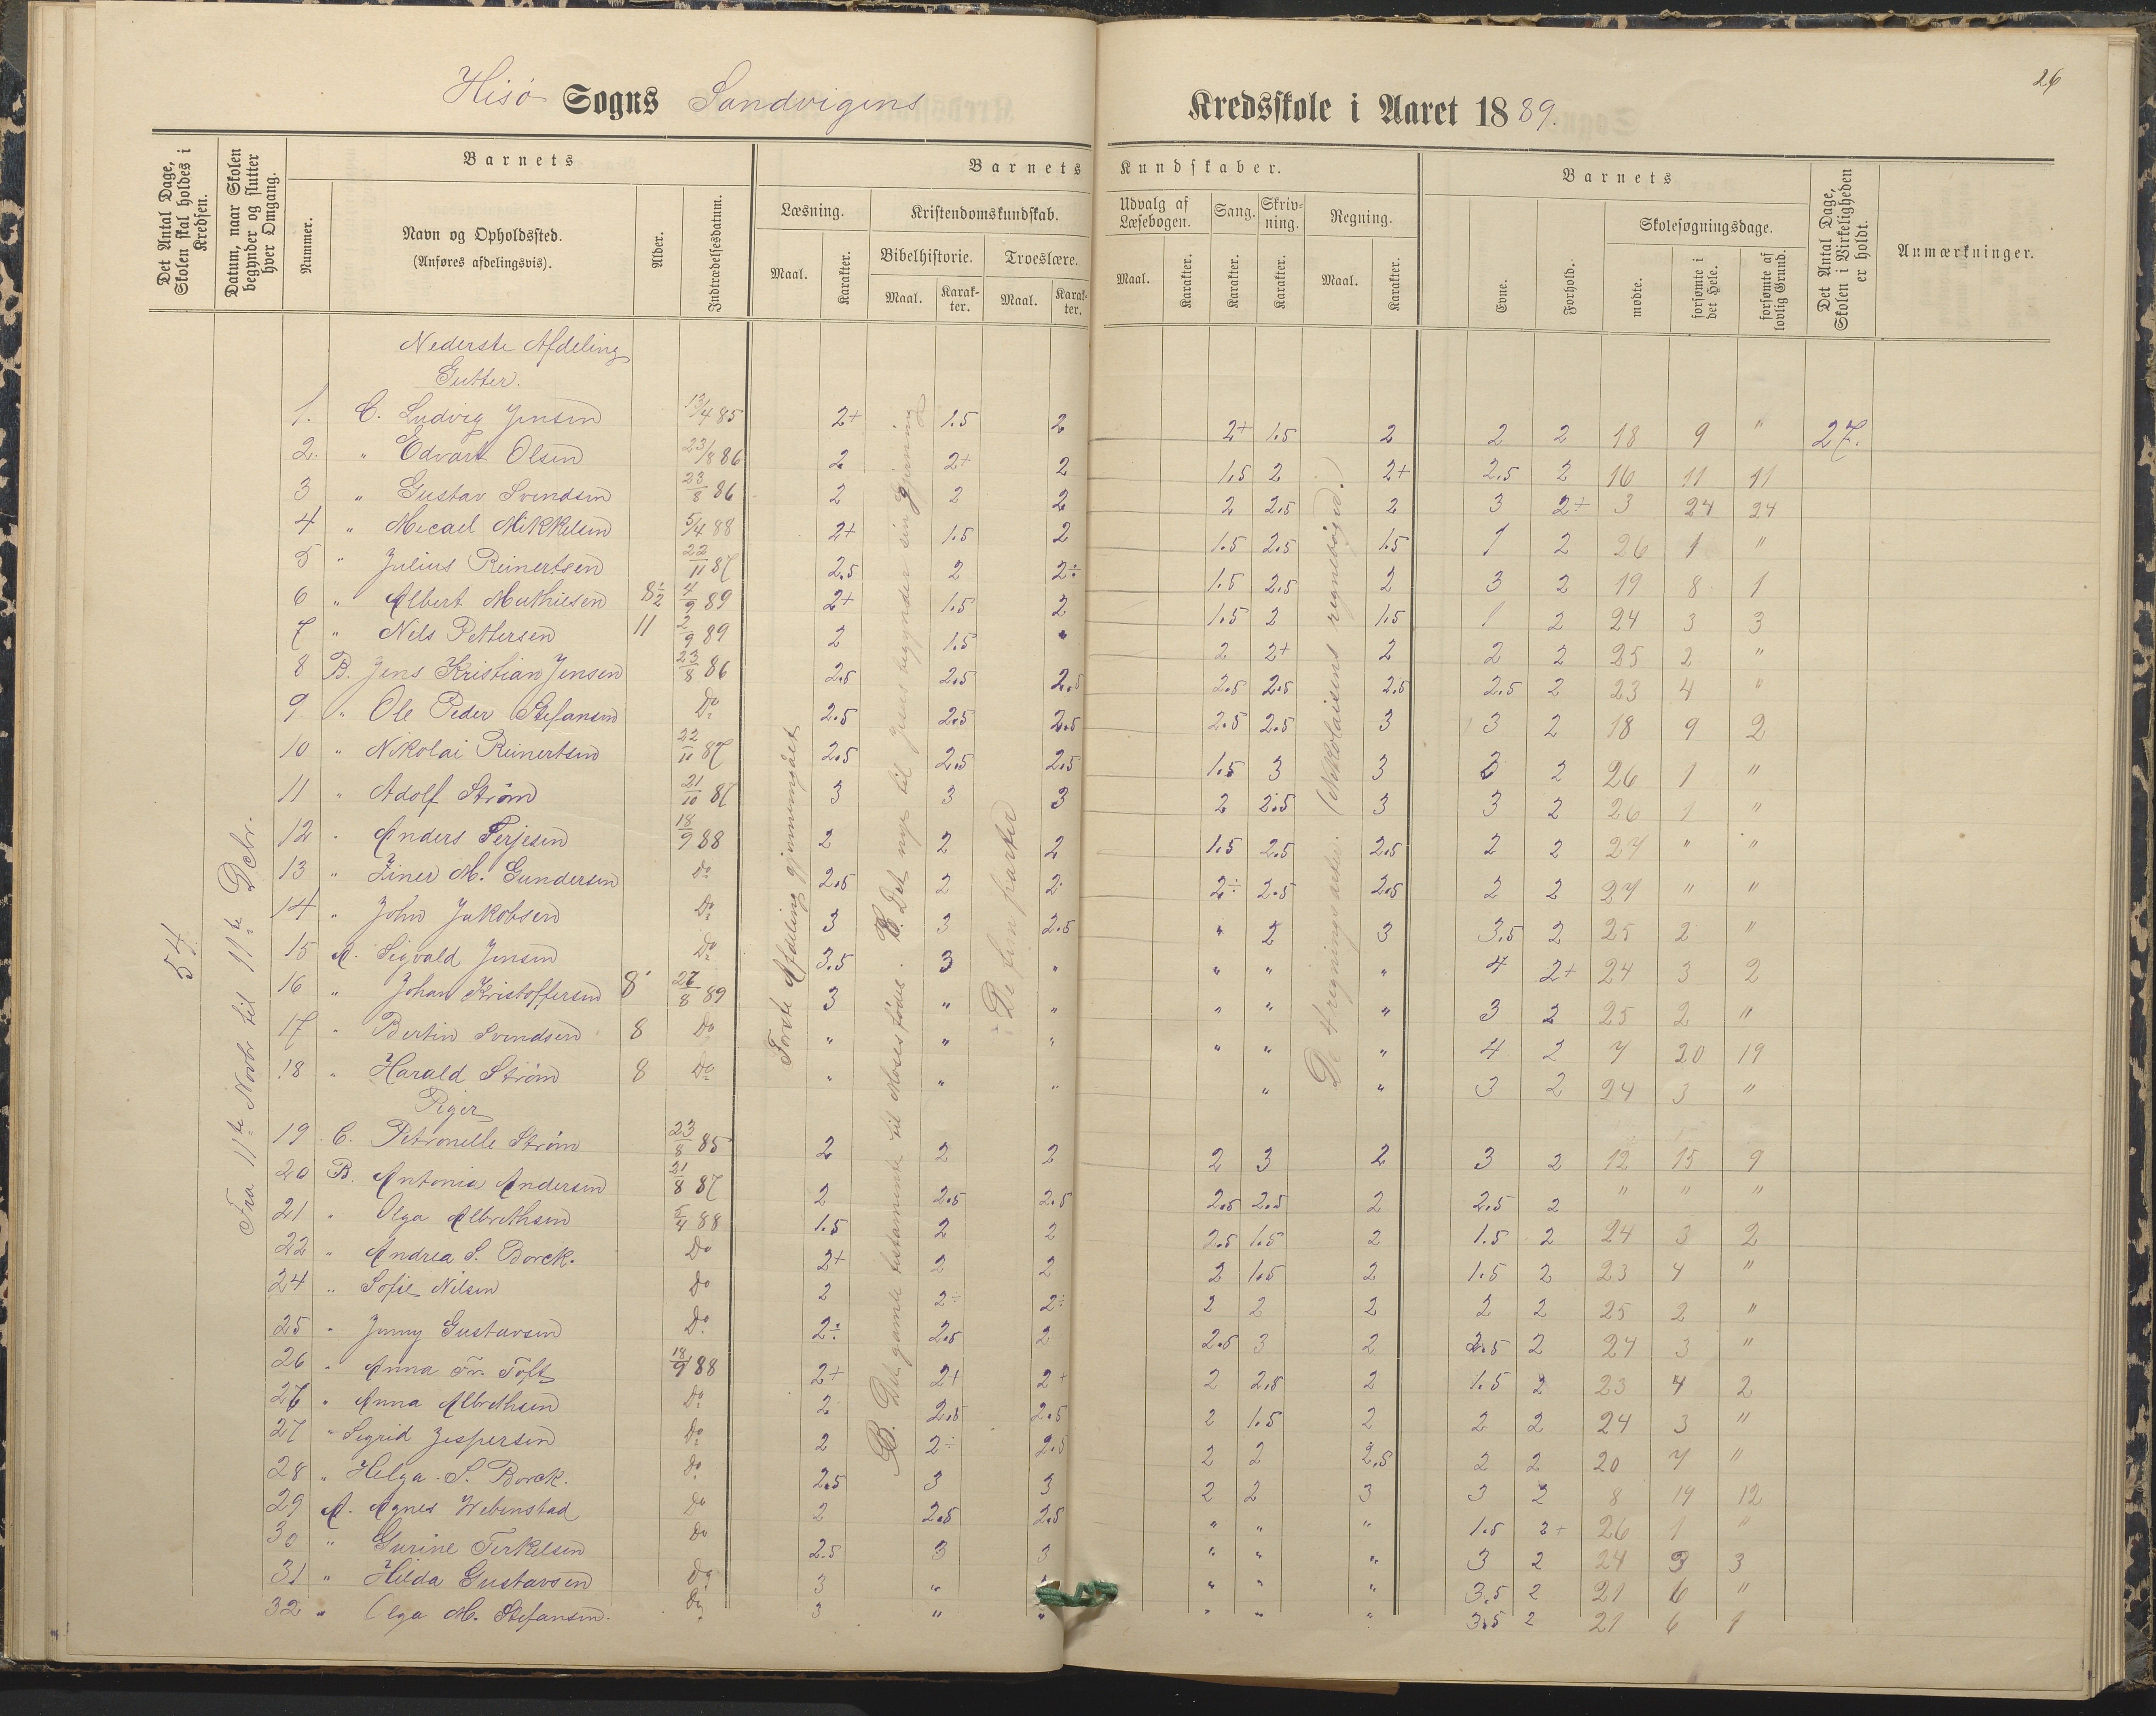 26
Hisö Sogns Sandvigens Kredsskole i Aaret 1889.
Det Antal Dage, Skolen skal holdes i Kredsen.
Datum, naar Skolen begynder og slutter hver Omgang.
Barnets
Nummer.
Navn og Opholdssted.
(Anføres afdelingsvis).
Alder.
Indtrædelsesdatum.
Barnets Kundskaber.
Læsning.
Maal.
Karakter.
Kristendomskundskab.
Bibelhistorie.
Maal.
Karakter.
Troeslære.
Maal.
Karakter.
Udvalg af Læsebogen.
Maal.
Karakter.
Sang.
Karakter.
Skrivning.
Karakter.
Regning.
Maal.
Karakter.
Barnets
Evne.
Forhold.
Skolesøgningsdage.
mødte.
forsømte i det Hele.
forsømte af lovlig Grund.
Det Antal Dage, Skolen i Virkeligheden er holdt.
Anmærkninger.
54.
Fra 11te Novbr til 11te Debr.
Første Afdeling gjennemgået
B. Det gamle testamente til Moses fødes. C. Det nye til Jesus begynder sin Gjerning
De fem parter
De 4 regningsarter. (Nikolaisens regnebøger.)
Nederste Afdeling
Gutter.
1. C. Ludvig Jensen 13/4 85 2+ 1.5 2 2+ 1.5 2 2 2 18 9 " 27.
2. " Edvart Olsen 23/8 86 2 2+ 2 1.5 2 2+ 2.5 2 16 11 11
3 " Gustav Svendsen 23/8 86 2 2 2 2 2.5 2 3 2+ 3 24 24
4 " Mecael Mikkelsen 5/4 88 2+ 1.5 2 1.5 2.5 1.5 1 2 26 1 "
5 " Julius Reinertsen 22/11 87 2.5 2 2÷ 1.5 2.5 2 3 2 19 8 1
6 " Albert Mathiesen 8½ 4/9 89 2+ 1.5 2 1.5 2 1.5 1 2 24 3 3
7 " Nils Pettersen 11 2/9 89 2 1.5 " 2 2+ 2 2 2 25 2 "
8 B. Jens Kristian Jensen 23/8 86 2.5 2.5 2.5 2.5 2.5 2.5 2.5 2 23 4 "
9 " Ole Peder Stefansen Do 2.5 2.5 2.5 2.5 2.5 3 3 2 18 9 2
10 " Nikolai Reinertsen 22/11 87 2.5 2.5 2.5 1.5 3 3 3 2 26 1 "
11 " Adolf Strøm 21/10 87 3 3 3 2 2.5 3 3 2 26 1 "
12 " Anders Terjesen 18/9 88 2 2 2 1.5 2.5 2.5 2 2 27 " "
13 " Einer M. Gundersen Do 2.5 2 2 2÷ 2.5 2.5 2 2 27 " "
14 " John Jakobsen Do 3 3 2.5 " 2 3 3.5 2 25 2 "
15 A. Sigvald Jensen Do 3.5 3 " " " " 4 2+ 24 3 2
16 " Johan Kristoffersen 8 27/8 89 3 " " " " " 3 2 25 2 "
17 " Bertin Svendsen 8 Do " " " " " " 4 2 7 20 19
18 " Harald Strøm 8 Do " " " " " 3 2 24 3 "
Piger
19 C. Petronelle Strøm 23/8 85 2 2 2 2 3 2 3 2 12 15 9
20 B. Antonia Andersen 21/8 87 2 2.5 2.5 2.5 2.5 2 2.5 2 " " "
21 " Olga Albrethsen 5/4 88 1.5 2 2 2.5 1.5 2 1.5 2 24 3 2
22 " Andrea S. Borck. Do 2+ 2 2 2 1.5 2 1.5 2 23 4 "
24 " Sofie Nilsen Do 2 2÷ 2÷ 2 2 2 2 2 25 2 "
25 " Jenny Gustavsen Do 2÷ 2.5 2 2.5 3 2 2.5 2 24 3 "
26 " Anna Toft 18/9 88 2+ 2+ 2+ 2 2.5 2 1.5 2 23 4 2
26 " Anna Albrethsen Do 2 2.5 2.5 2 1.5 2 2 2 24 3 "
27 " Sigrid Jespersen Do 2 2÷ 2.5 2 2 2.5 2 2 20 7 "
28 " Helga S. Borck. Do 2.5 3 3 2 2 3 3 2 8 19 12
29 A. Agnes Webenstad Do 2 2.5 2.5 " " " 1.5 2+ 26 1 "
30 " Gurine Terkelsen Do 2.5 3 3 " " " 3 2 24 3 3
31 " Hilda Gustavsen Do 3 " " " " " 3.5 2 21 6 "
32 " Olga M. Stefansen. Do 3 " " " " " 3.5 2 21 6 1